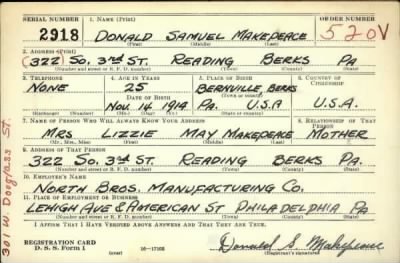 SERIAL NUMBER 1. NAME (Print) ORDER NUMBER
2918 DONALD SAMUEL MAKEPEACE 520V
(First) (Middle) (Last)
2. ADDRESS (Print)
(322) SO. 3rd ST. READING BERKS PA
(Number and street or R. F. D. number) (Town) (County) (State)
3. TELEPHONE 4. AGE IN YEARS 5. PLACE OF BIRTH 6. COUNTRY OF CITIZENSHIP
NONE 25 BERNVILLE, BERKS
DATE OF BIRTH (Town or county)
NOV. 14 1914 PA. U.S.A U.S.A.
(Exchange) (Number) (Mo.) (Day) (Yr.) (State or country)
7. NAME OF PERSON WHO WILL ALWAYS KNOW YOUR ADDRESS 8. RELATIONSHIP OF THAT PERSON
MRS LIZZIE MAY MAKEPEACE MOTHER
(Mr., Mrs., Miss) (First) (Middle) (Last)
9. ADDRESS OF THAT PERSON
322 SO. 3rd ST. READING BERKS PA.
(Number and street or R. F. D. number) (Town) (County) (State)
10. EMPLOYER'S NAME
NORTH BROS. MANUFACTURING CO.
11. PLACE OF EMPLOYMENT OR BUSINESS
LEHIGH AVE & AMERICAN ST PHILADELPHIA PA
(Number and street or R. F. D. number) (Town) (County) (State)
I AFFIRM THAT I HAVE VERIFIED ABOVE ANSWERS AND THAT THEY ARE TRUE.
REGISTRATION CARD
D. S. S. Form 1 (over) 16—17105 Donald S. Makepeace
(Registrant's signature)
301 W. Douglass St.